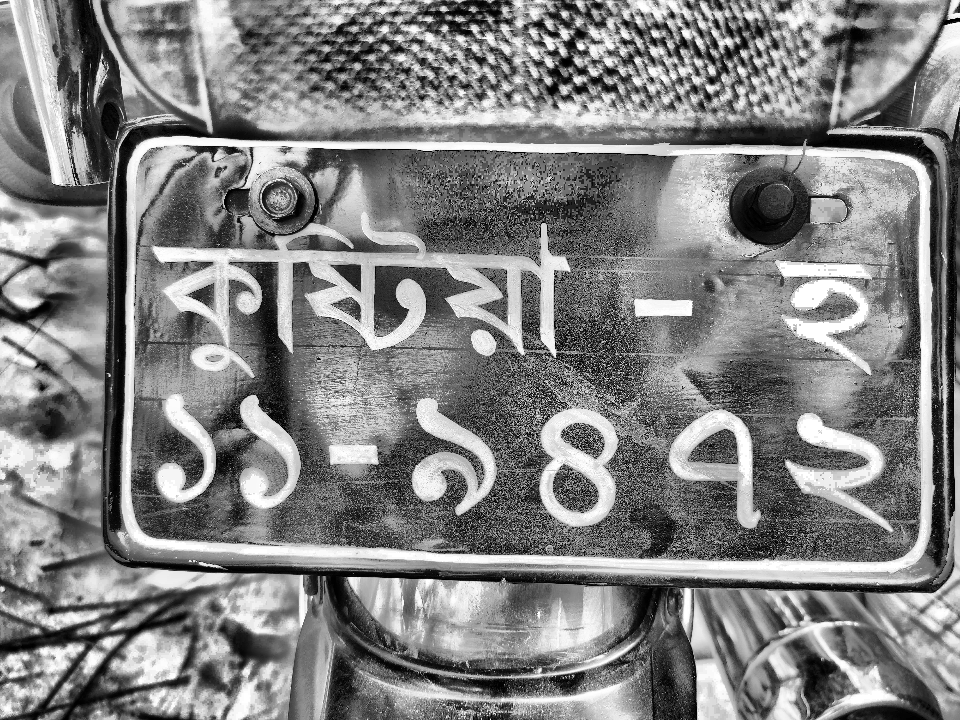 কুষ্টিয়া - হ
১১-৯৪৭২